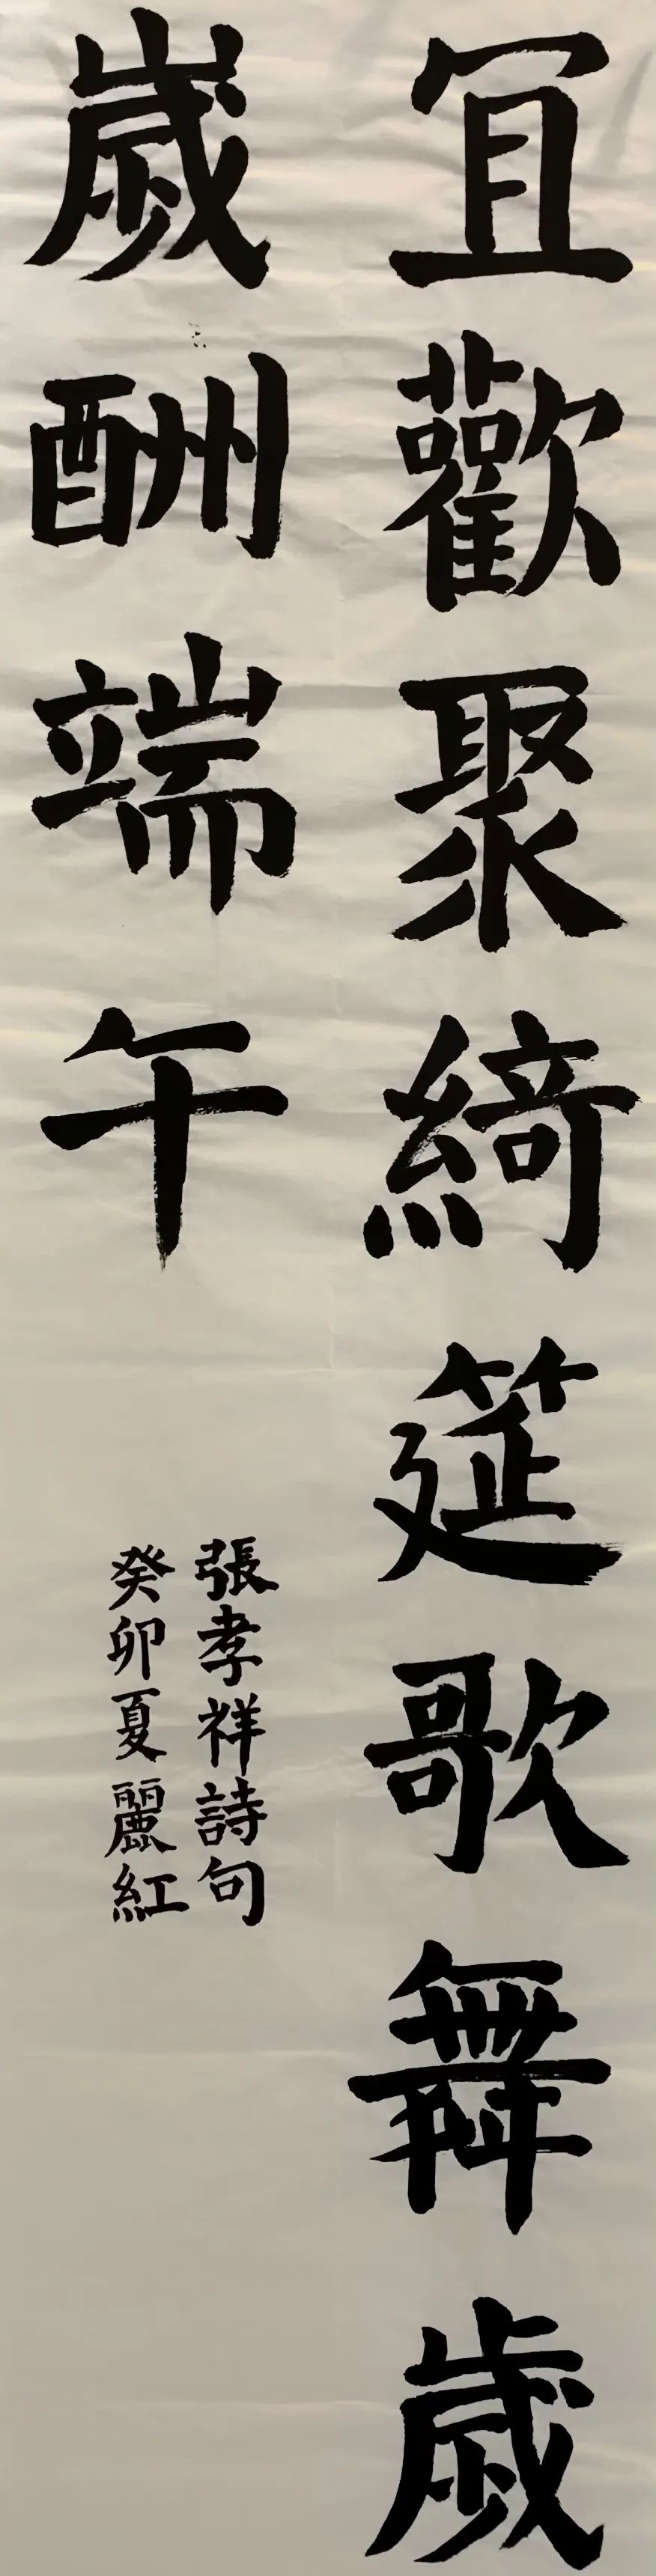 宜歡聚綺筵歌舞歲
歲酬端午
張孝祥詩句
癸卯夏麗紅